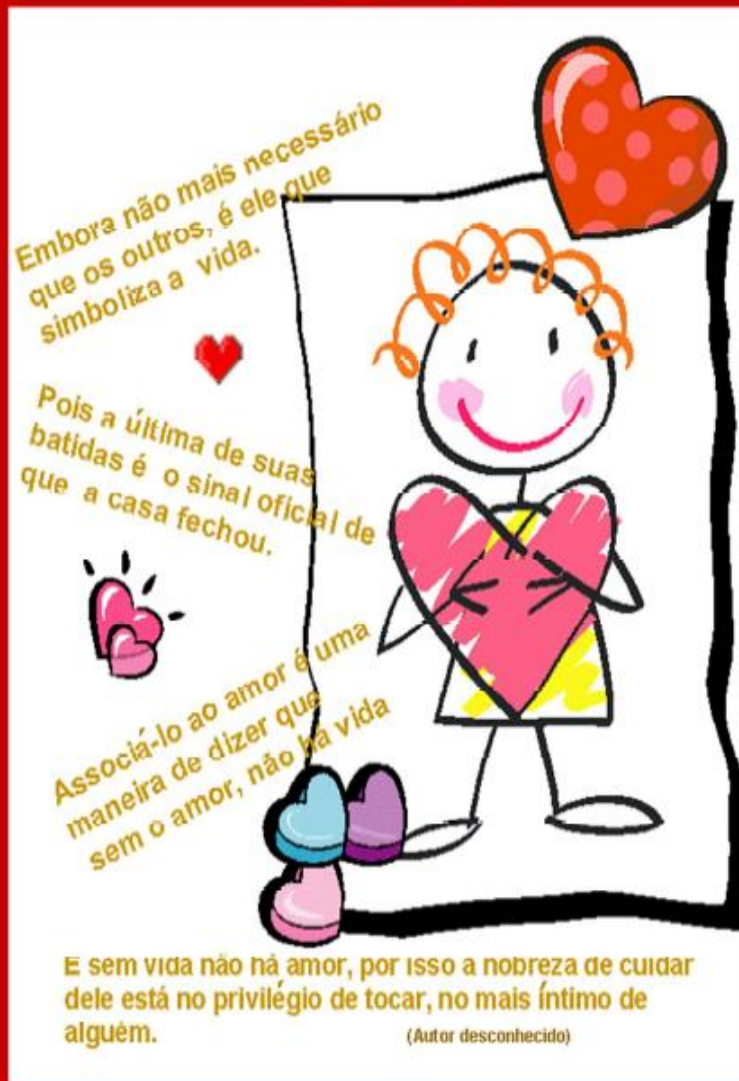 Embora não mais necessário
que os outros, é ele que
simboliza a vida.
Pois a última de suas
batidas é o sinal oficial de
que a casa fechou.
Associá-lo ao amor é uma
maneira de dizer que
sem o amor, não há vida
E sem vida não há amor, por isso a nobreza de cuidar
dele está no privilégio de tocar, no mais íntimo de
alguém.
(Autor desconhecido)